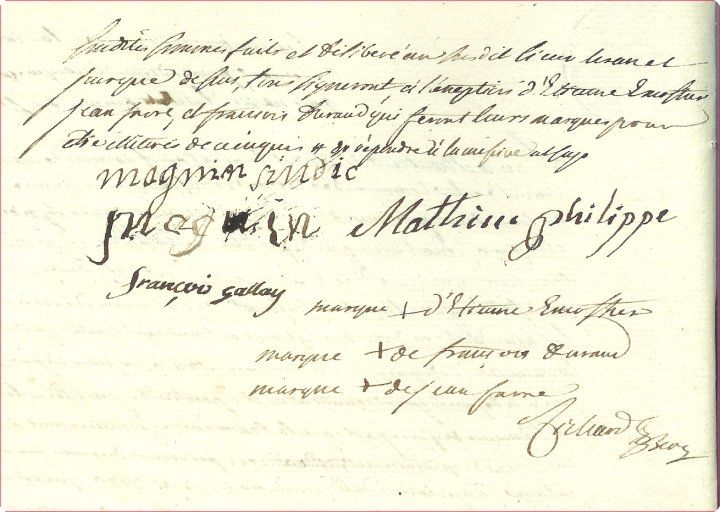 susdites sommes faits et délibéré au susdit lieu les an et
jour que dessus, tous signeront à l'exception d'Etienne
jean favre, et françois duraud qui feront leurs marques pour
être illitérés de ce enquis et
magnin sindic
magnin Mathieu philippe
françois gallay
marque + d'Etienne
marque + de françois duraud
marque + de jean favre
Richard